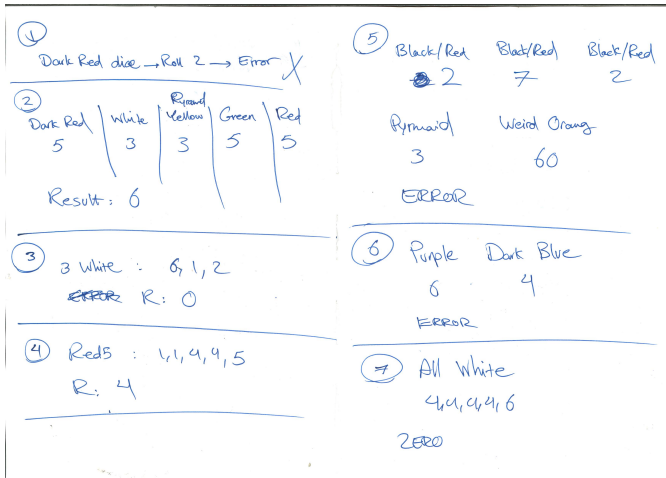 1
Dark Red dice → Roll 2 → Error X
2
Dark Red | White | Pyramid Yellow | Green | Red
5 3 3 5 5
Result: 6
3
3 White : 6, 1, 2
ERROR R: 0
4
Red5 : 1,1,4,4,5
R: 4
5
Black/Red Black/Red Black/Red
2 7 2
Pyrmaid Weird Orang
3 60
ERROR
6
Purple Dark Blue
6 4
ERROR
7
All White
4,4,4,4,6
ZERO